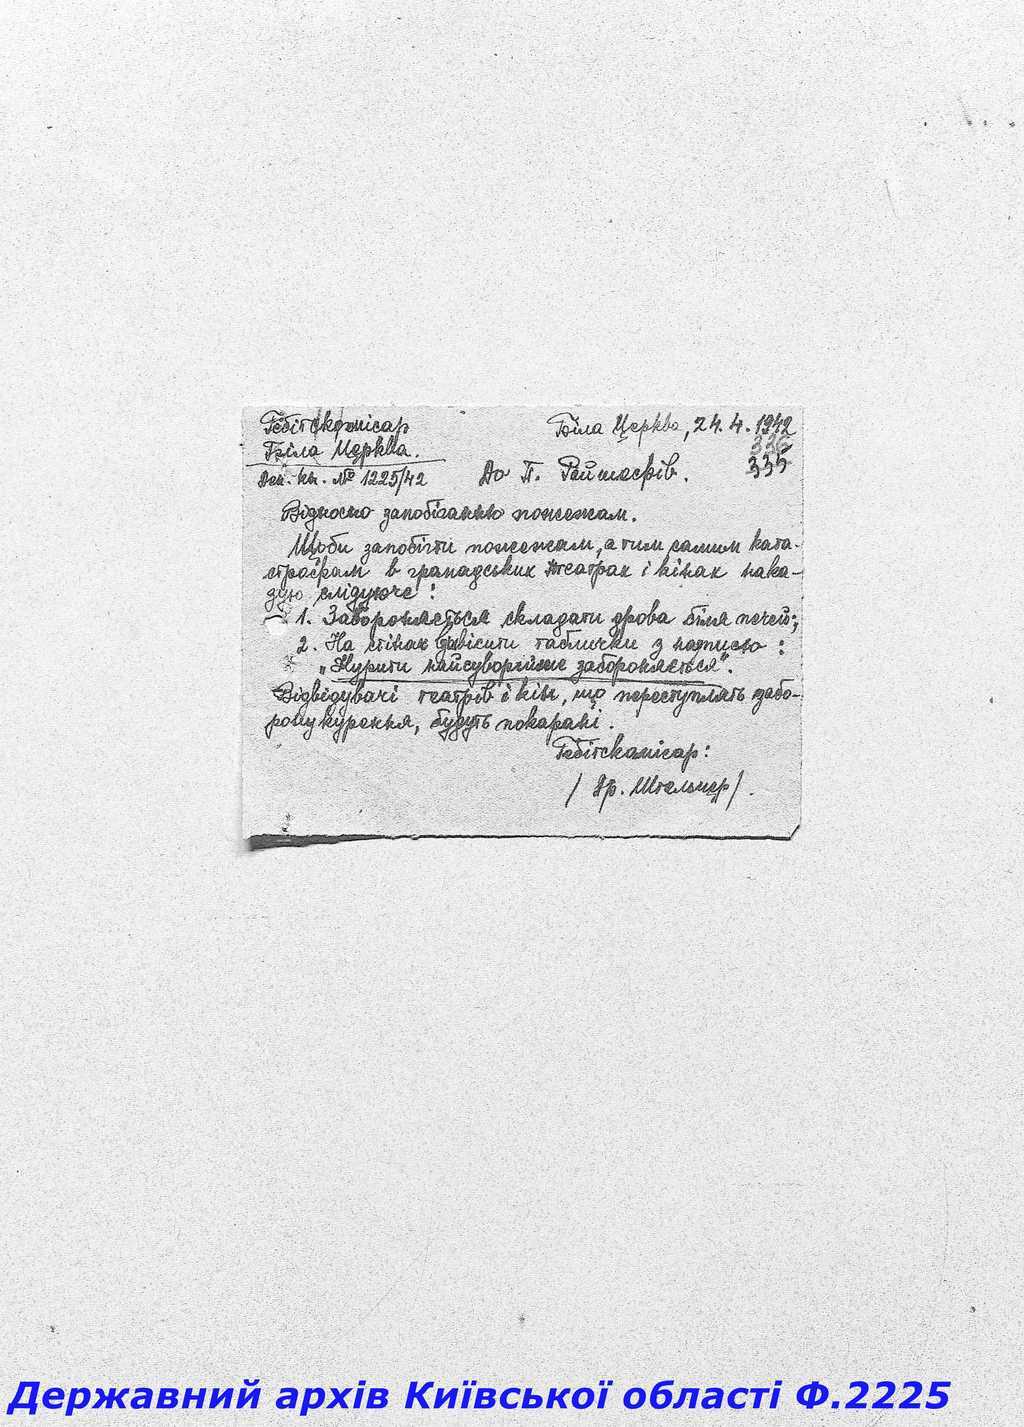 Гебітскомісар
Біла Церква, 24.4.1942
Біла Церква.
336
335
Ден. кн. № 1225/42
До П. Райшефів.
Відносно запобіганню пожежам.
Щоби запобігти пожежам, а тим самим ката-
строфам в громадських театрах і кінах нака-
зую слідуюче:
1. Забороняється складати дрова біля печей;
2. На стінах вивісити таблички з написю:
"Курити найсуворійше забороняється".
Відвідувачі театрів і кін, що переступлять забо-
рону курення, будуть покарані.
Гебітскомісар:
/ Др. Штельцер/.
Державний архів Київської області Ф.2225